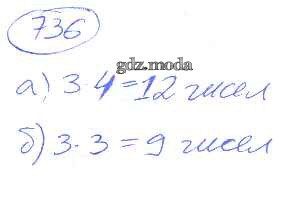 736
gdz.moda
а) 3·4=12 чисел
б) 3·3=9 чисел